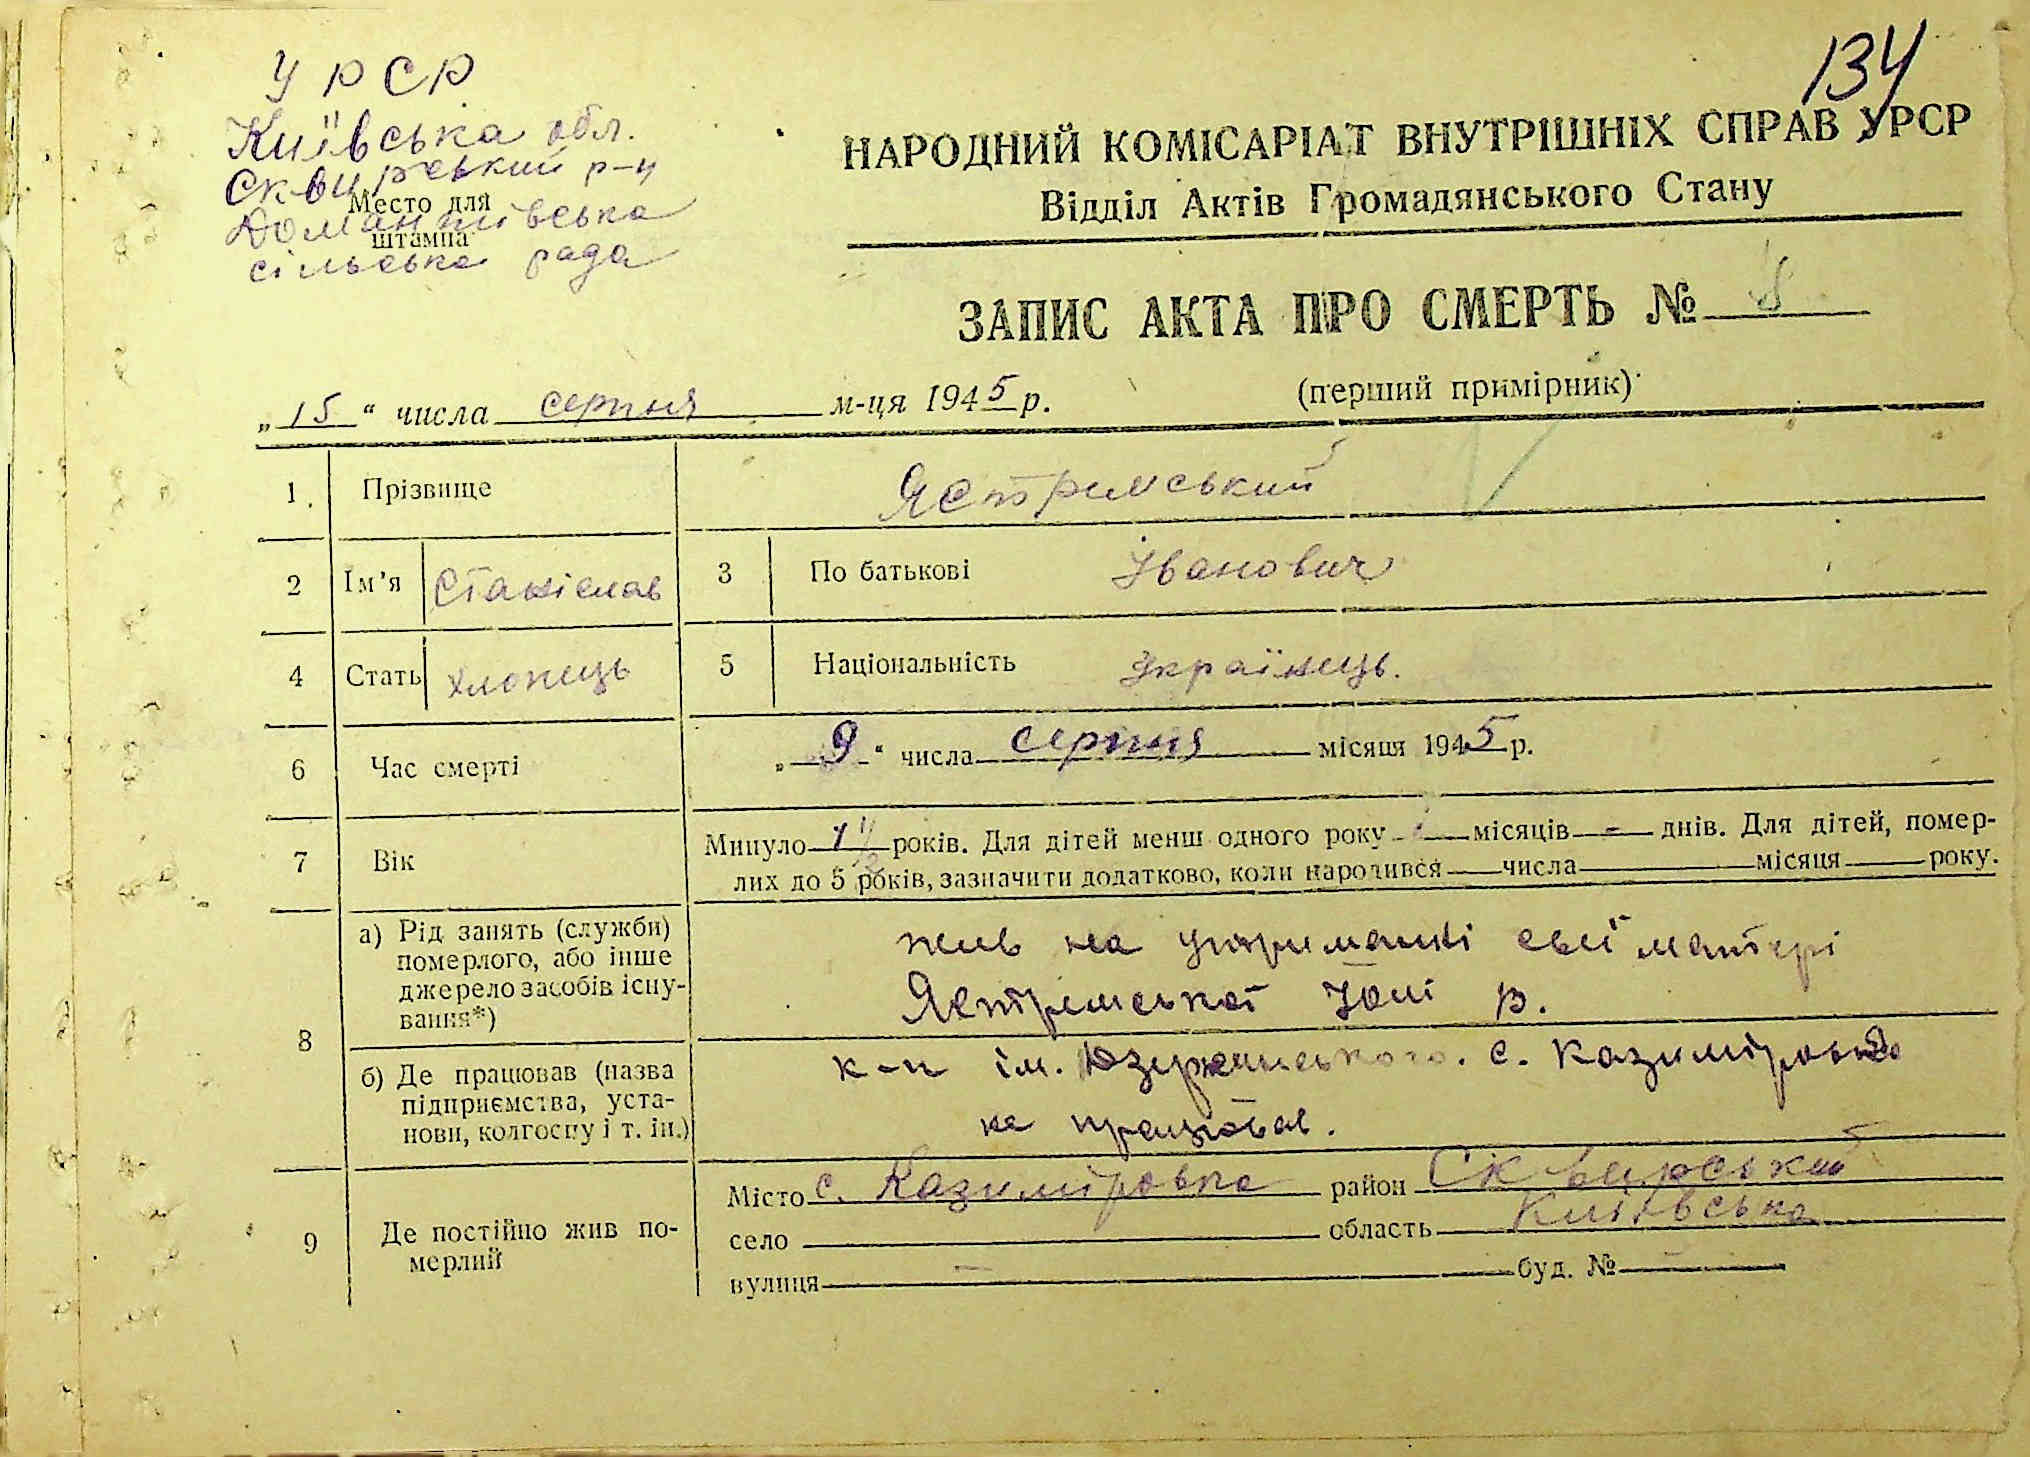 134
УРСР
Київська обл.
Сквирський р-н
Место для
штампа
Домантівська
сільська рада
НАРОДНИЙ КОМІСАРІАТ ВНУТРІШНІХ СПРАВ УРСР
Відділ Актів Громадянського Стану
ЗАПИС АКТА ПРО СМЕРТЬ № 8
„15“ числа серпня м-ця 1945 р.
(перший примірник)
1 Прізвище Ястримський
2 Ім'я Станіслав 3 По батькові Іванович
4 Стать хлопець 5 Національність Українець.
6 Час смерті „9“ числа серпня місяця 1945 р.
7 Вік Минуло 1 1/2 років. Для дітей менш одного року - місяців - днів. Для дітей, помер-
лих до 5 років, зазначити додатково, коли народився числа місяця року.
8 а) Рід занять (служби)
померлого, або інше
джерело засобів існу-
вання*)
жив на утриманні свеї матері
Ястримської Юлі В.
б) Де працював (назва
підприємства, уста-
нови, колгоспу і т. ін.)
к-п ім. Дзержинського. с. Казиміровка
не працював.
9 Де постійно жив по-
мерлий
Місто с. Казиміровка район Сквирський
село область Київська
вулиця — буд. № —